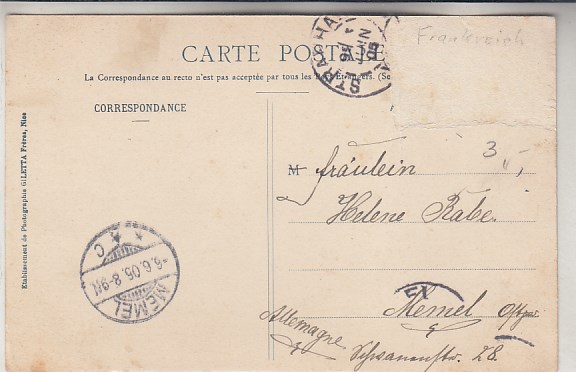 Frankreich
CARTE POSTALE
La Correspondance au recto n'est pas acceptée par tous les Pays Etrangers. (Se
CORRESPONDANCE
Etablissement de Photographie GILETTA Frères, Nice
ST RAPHA
JUIN
05
3
M Fräulein
Helene Rabe.
Memel
Allemagne
28.
MEMEL
6.6.05.8-9V.
C